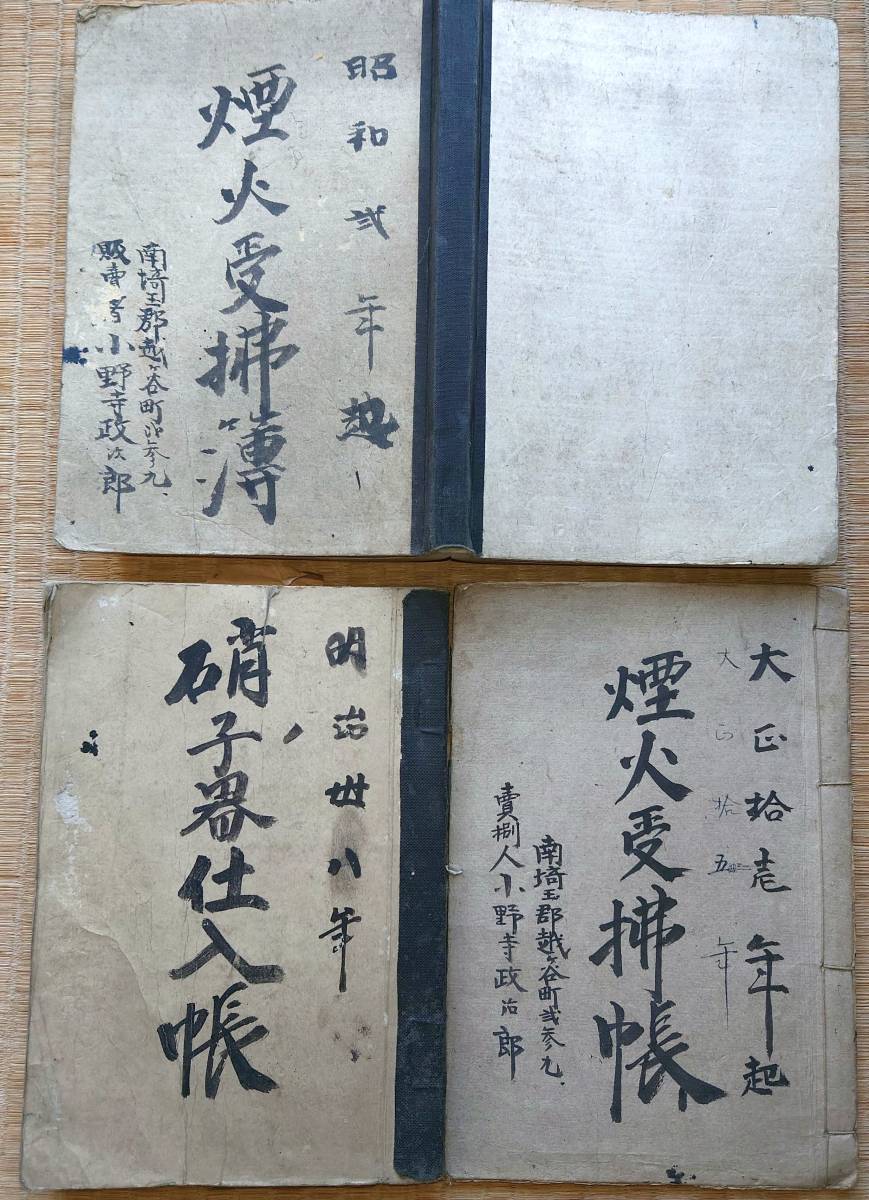 昭和弐年起
煙火受拂簿
南埼玉郡越ヶ谷町弐参九、
販賣者小野寺政次郎
大正拾壱年起
大正拾五年
煙火受拂帳
南埼玉郡越ヶ谷町弐参九、
賣捌人小野寺政治郎
明治丗八年
硝子器仕入帳